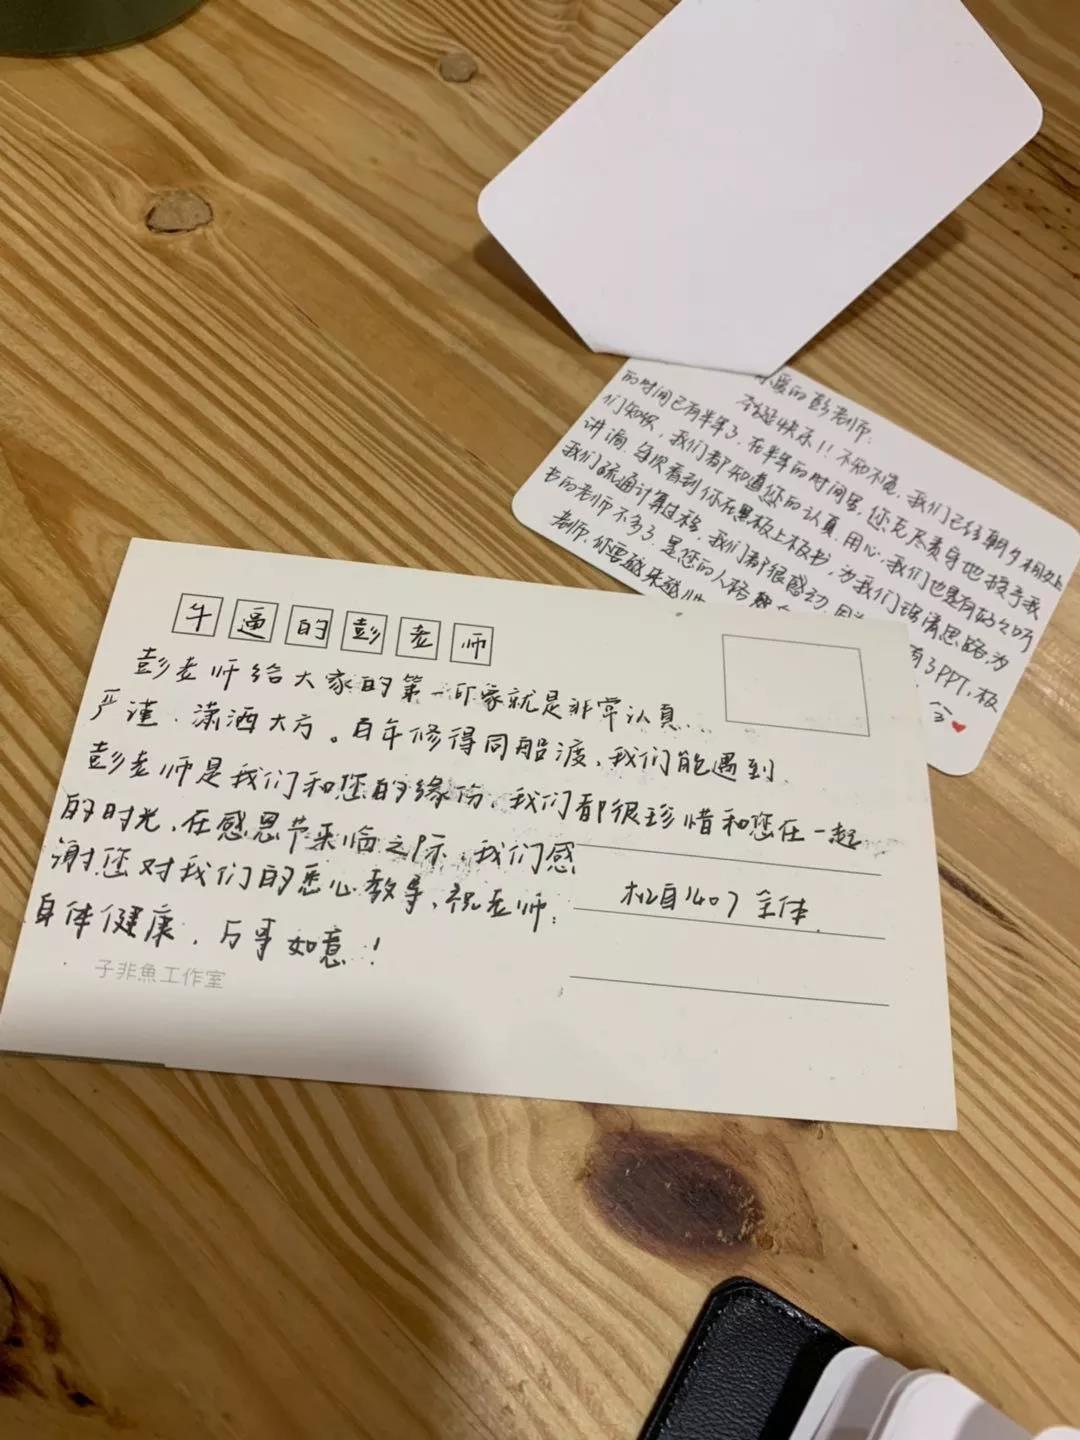 牛逼的彭老师
彭老师给大家的第一印象就是非常认真、
严谨、潇洒大方。百年修得同船渡,我们能遇到
彭老师是我们和您的缘份,我们都很珍惜和您在一起
的时光,在感恩节来临之际,我们感
谢您对我们的悉心教导,祝老师:
身体健康,万事如意!
机自1407 全体
子非魚工作室
的彭老师:
圣诞快乐!!不知不觉,我们已经朝夕相处
的时间已有半年了,在半年的时间里,您克尽责守地授予我
们知识,我们都知道您的认真,用心,我们也是有好好听
讲滴,每次看到你在黑板上板书,为我们理清思路,为
我们疏通计算过程,我们都很感动,因
有了PPT,板
书的老师不多了,是您的人格
老师,你要越来越